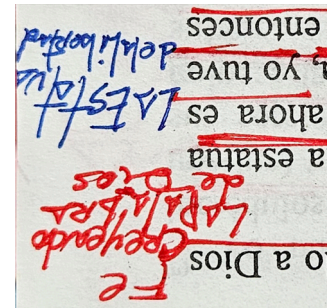 o a Dios
a estatua
ahora es
a, yo tuve
entonces
Fe
Creyendo
LA PALABRA
de Dios
LA EStatua
de la libertad